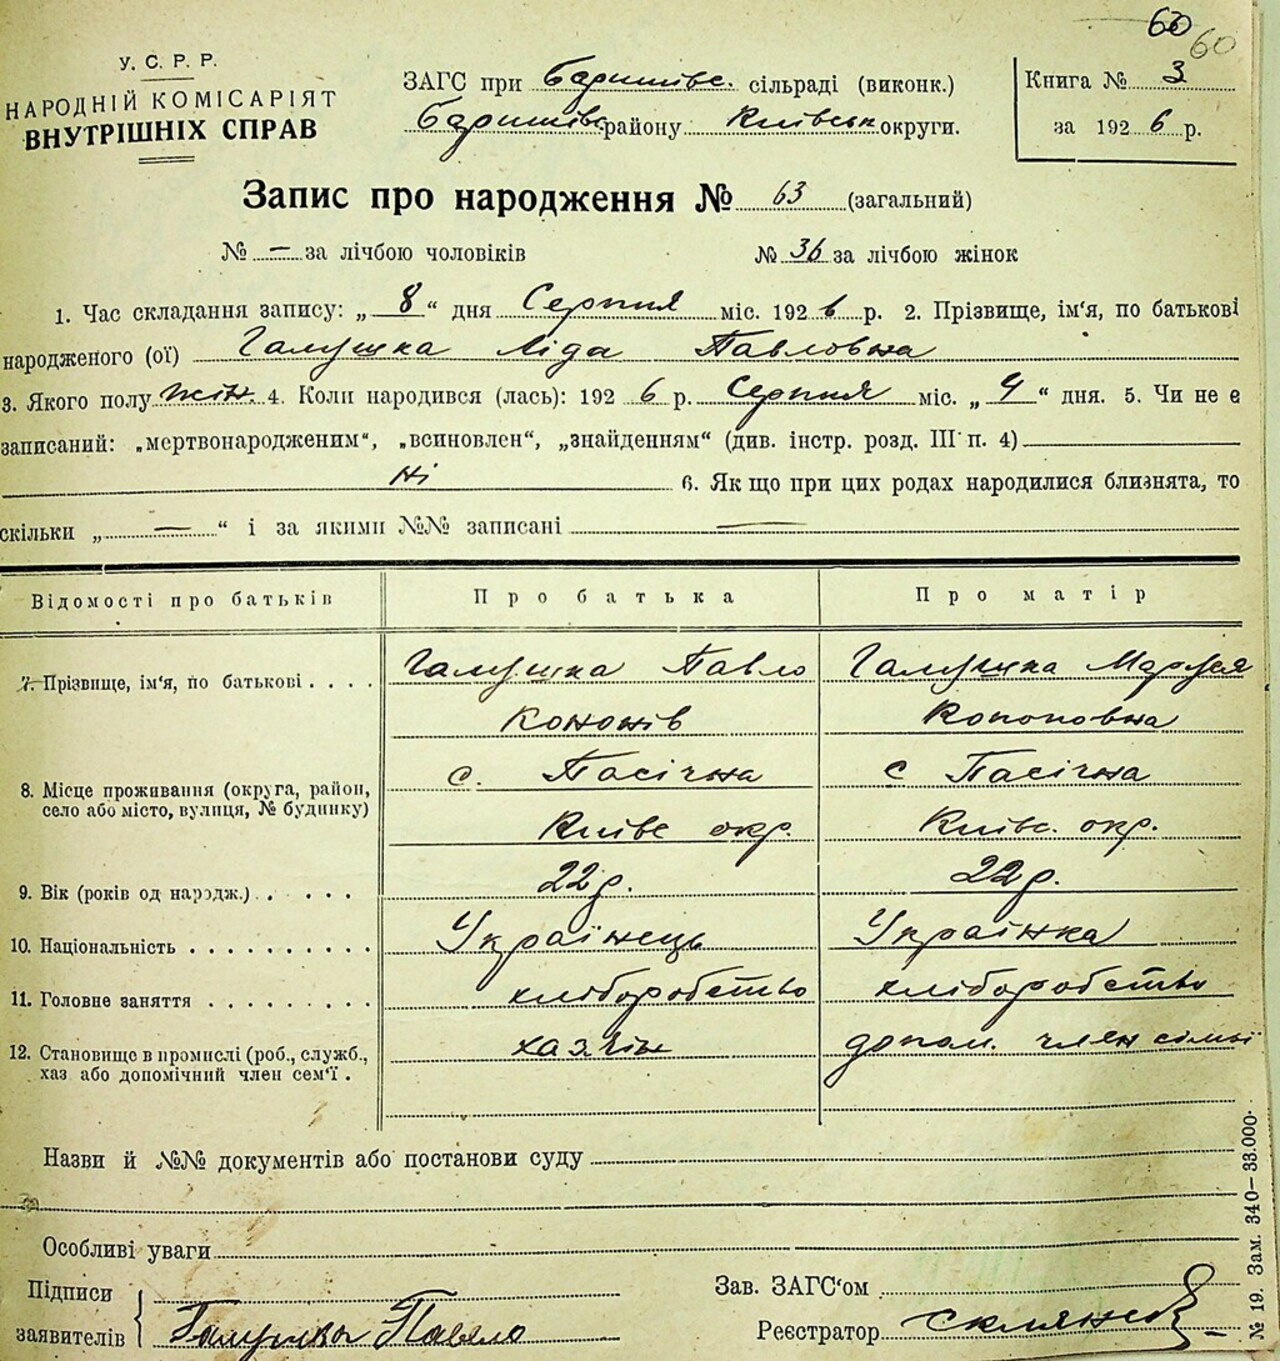 60
60
У. С. Р. Р.
НАРОДНІЙ КОМІСАРІЯТ
ВНУТРІШНІХ СПРАВ
ЗАГС при Баришівс. сільраді (виконк.)
Баришівс. району Київськ округи.
Книга № 3
за 1926 р.
Запис про народження № 63 (загальний)
№ — за лічбою чоловіків № 36 за лічбою жінок
1. Час складання запису: „ 8 “ дня Серпня міс. 1926 р. 2. Прізвище, ім'я, по батькові
народженого (ої) Галушка Ліда Павловна
3. Якого полу жін. 4. Коли народився (лась): 1926 р. Серпня міс. „ 4 “ дня. 5. Чи не є
записаний: „мертвонародженим“, „всиновлен“, „знайденням“ (див. інстр. розд. III п. 4)
ні 6. Як що при цих родах народилися близнята, то
скільки „ — “ і за якими №№ записані —
Відомості про батьків Про батька Про матір
7. Прізвище, ім'я, по батькові . . . . Галушка Павло Галушка Маруся
Кононів Кононовна
8. Місце проживання (округа, район, с. Пасічна с Пасічна
село або місто, вулиця, № будинку) Київс окр. Київс. окр.
9. Вік (років од народж.) . . . . . 22 р. 22 р.
10. Національність . . . . . . . . . . Українець Українка
11. Головне заняття . . . . . . . . . хліборобство хліборобство
12. Становище в промислі (роб., служб., хазяїн допом. член сімьї
хаз або допомічний член сем'ї .
Назви й №№ документів або постанови суду
Особливі уваги
Підписи
заявителів Галушка Павло
Зав. ЗАГС'ом
Реєстратор
№ 19. Зам. 340—33.000.